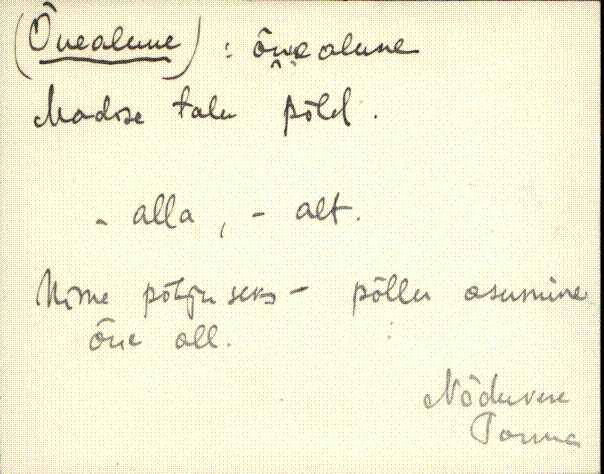 (Õuealune) : õuealune
Madise talu põld.
- alla, - alt.
Nime põhjuseks - põllu asumine
õue all.
Nõduvere
Torma